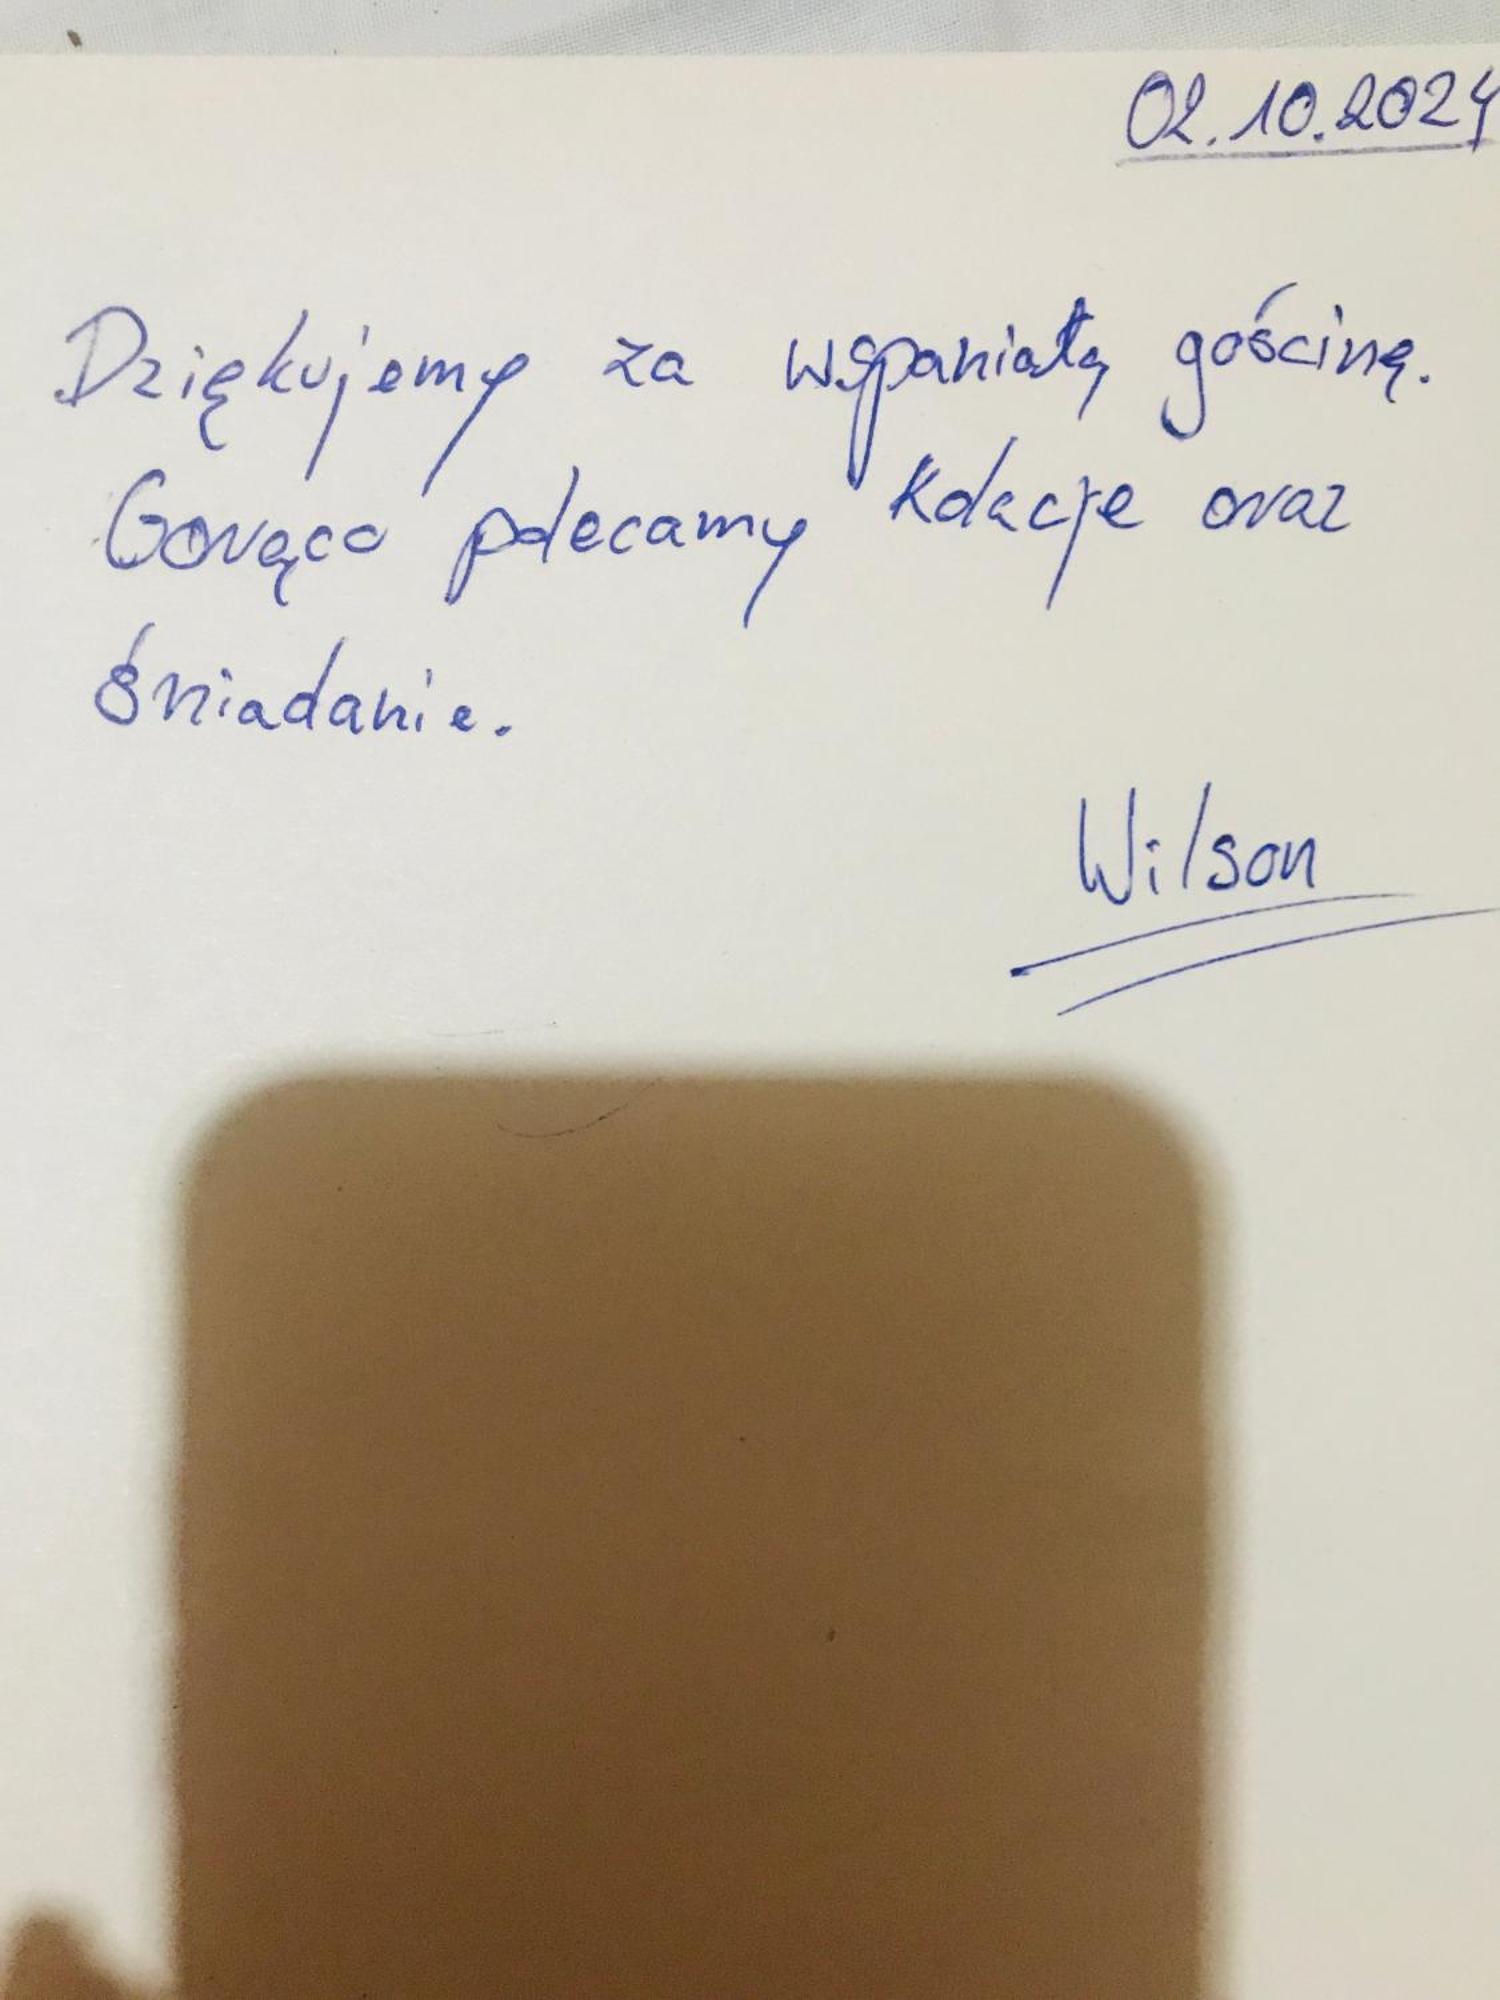 02.10.2024
Dziękujemy za wspaniałą gościnę.
Gorąco polecamy kolacje oraz
śniadanie.
Wilson